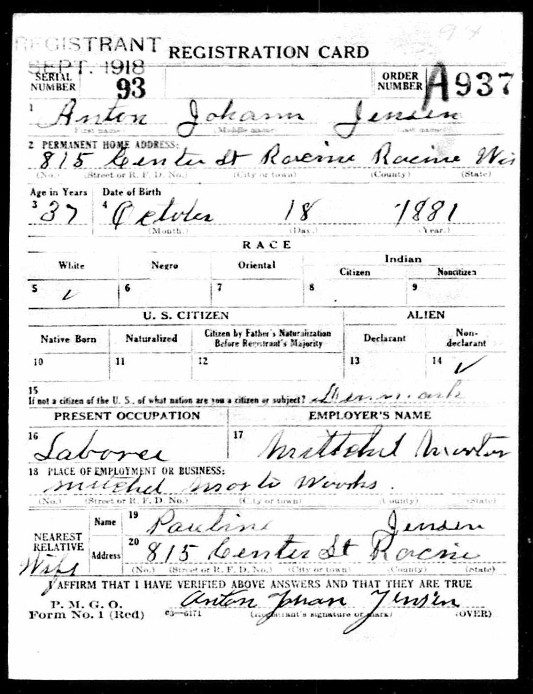 REGISTRANT
SEPT. 1918
REGISTRATION CARD
SERIAL NUMBER 93 ORDER NUMBER A937
1 Anton Johann Jensen
First name Middle name Last name
2 PERMANENT HOME ADDRESS:
815 Center St Racine Racine Wis
(No.) (Street or R. F. D. No.) (City or town) (County) (State)
Age in Years Date of Birth
3 37 4 October 18 1881
(Month.) (Day.) (Year.)
RACE
White Negro Oriental Indian
Citizen Noncitizen
5 ✓ 6 7 8 9
U. S. CITIZEN ALIEN
Native Born Naturalized Citizen by Father's Naturalization Before Registrant's Majority Declarant Non-declarant
10 11 12 13 14 ✓
15
If not a citizen of the U. S., of what nation are you a citizen or subject? Denmark
PRESENT OCCUPATION EMPLOYER'S NAME
16 Laborer 17 Mittchel Mootor
18 PLACE OF EMPLOYMENT OR BUSINESS:
Mitchel Works
(No.) (Street or R. F. D. No.) (City or town) (County) (State)
NEAREST RELATIVE Name 19 Pauline Jensen
Wife Address 20 815 Center St Racine
(No.) (Street or R. F. D. No.) (City or town) (County) (State)
I AFFIRM THAT I HAVE VERIFIED ABOVE ANSWERS AND THAT THEY ARE TRUE
P. M. G. O.
Form No. 1 (Red) 03—6171 Anton Johan Jensen
(Registrant's signature or mark) (OVER)